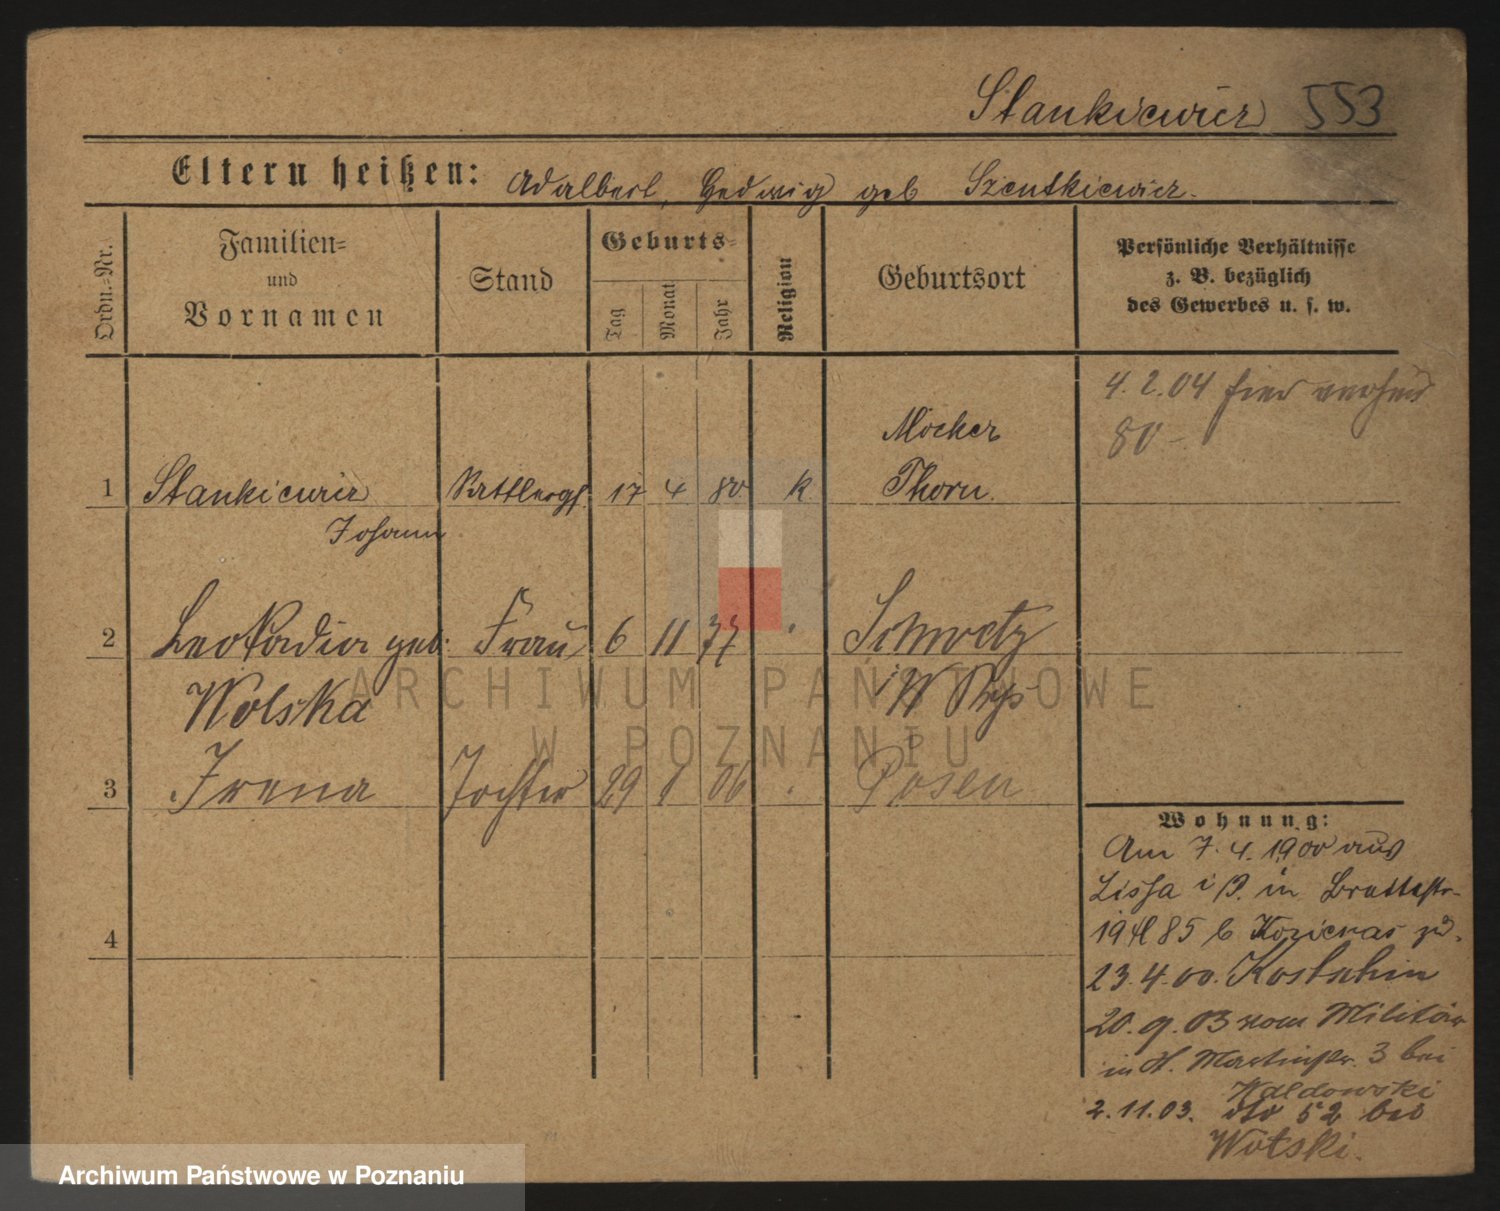 Stankiewicz 553
Eltern heißen: Adalbert, Hedwig geb Szentkiewicz.
Ordn.-Nr.
Familien- und Vornamen
Stand
Geburts-
Tag
Monat
Jahr
Religion
Geburtsort
Persönliche Verhältnisse
z. B. bezüglich
des Gewerbes u. s. w.
4.2.04 hier
80
Mocker
1 Stankiewicz Sattlergs. 17 4 80 k Thorn.
Johann
2 Leokadia geb. Frau 6 11 77 Schwetz
Wolska i W Prß
3 Irena Tochter 29 1 06 Posen
4
Wohnung:
Am 7.4.1900 aus
Lissa i P. in
19 b
23.4.00. Kostschin
20.9.03 vom Militär
in St. Martinstr. 3 bei
Waldowski
2.11.03. dto 52 bei
Wolski.
ARCHIWUM PAŃSTWOWE
W POZNANIU
Archiwum Państwowe w Poznaniu